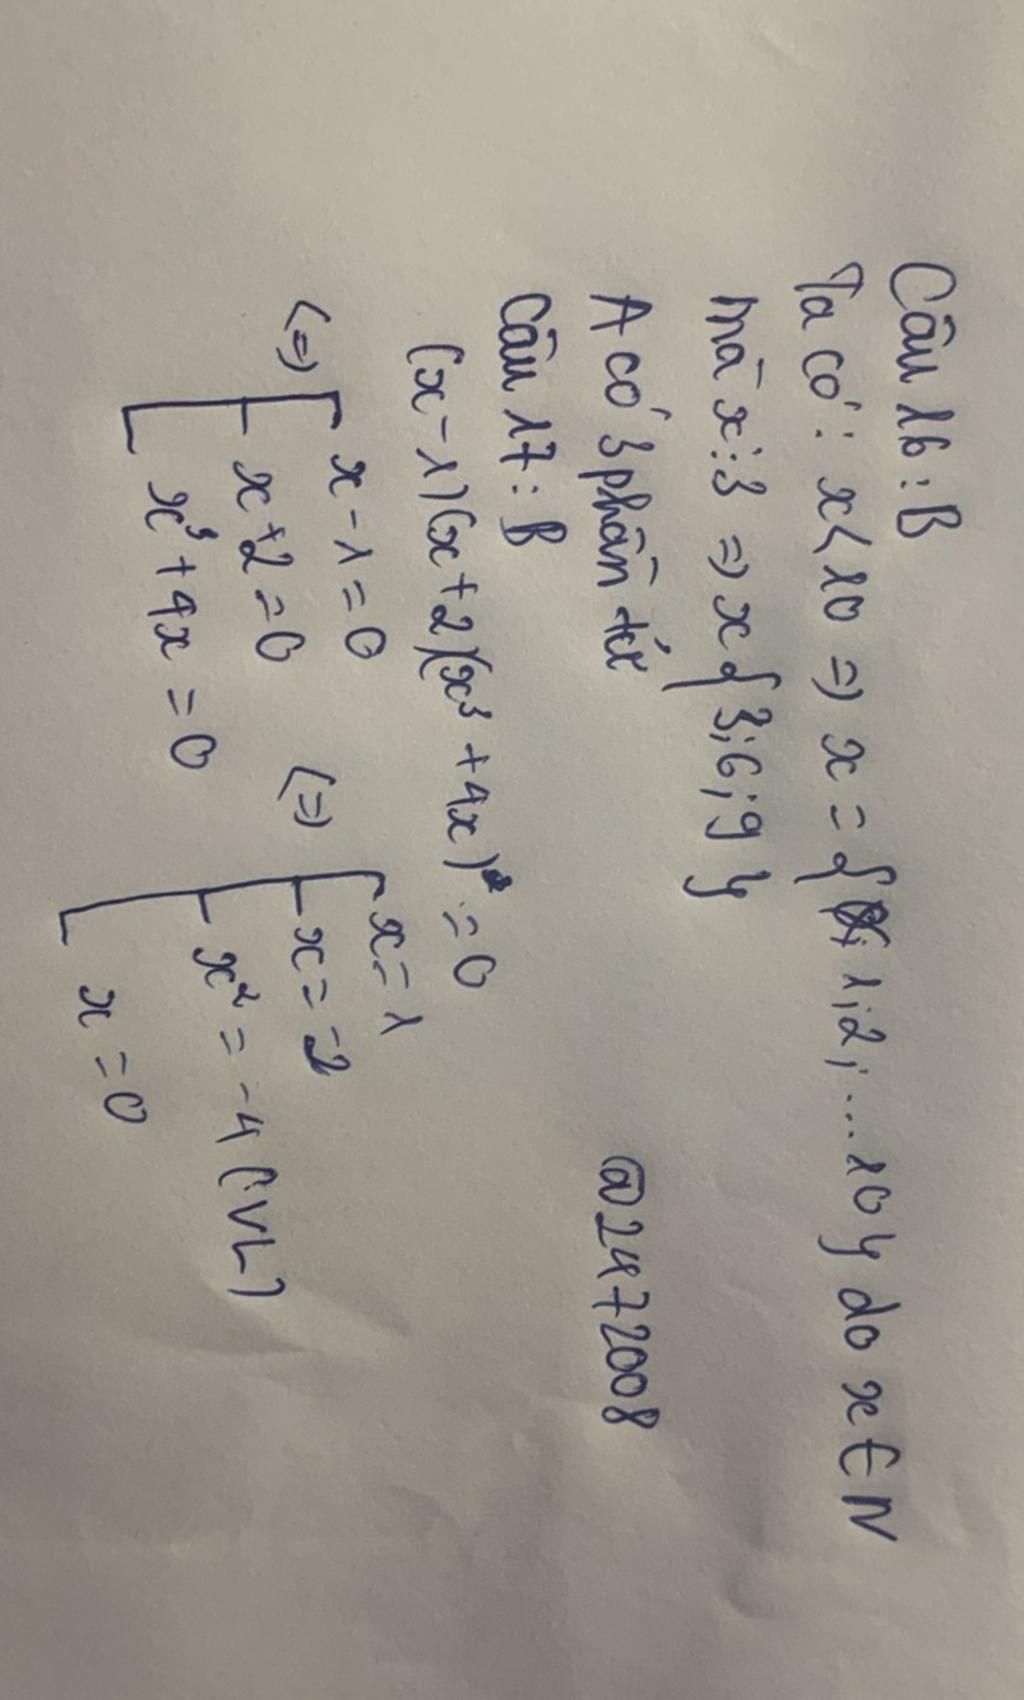 Câu 16 : B
Ta có : x < 10 => x = { 1; 2; ... 10 } do x ∈ N
mà x ⋮ 3 => x { 3; 6; 9 }
A có 3 phần tử
@2472008
Câu 17 : B
(x - 1)(x + 2)(x³ + 4x) = 0
<=> [ x - 1 = 0
x + 2 = 0
x³ + 4x = 0
<=> [ x = 1
x = -2
x² = -4 (VL)
x = 0